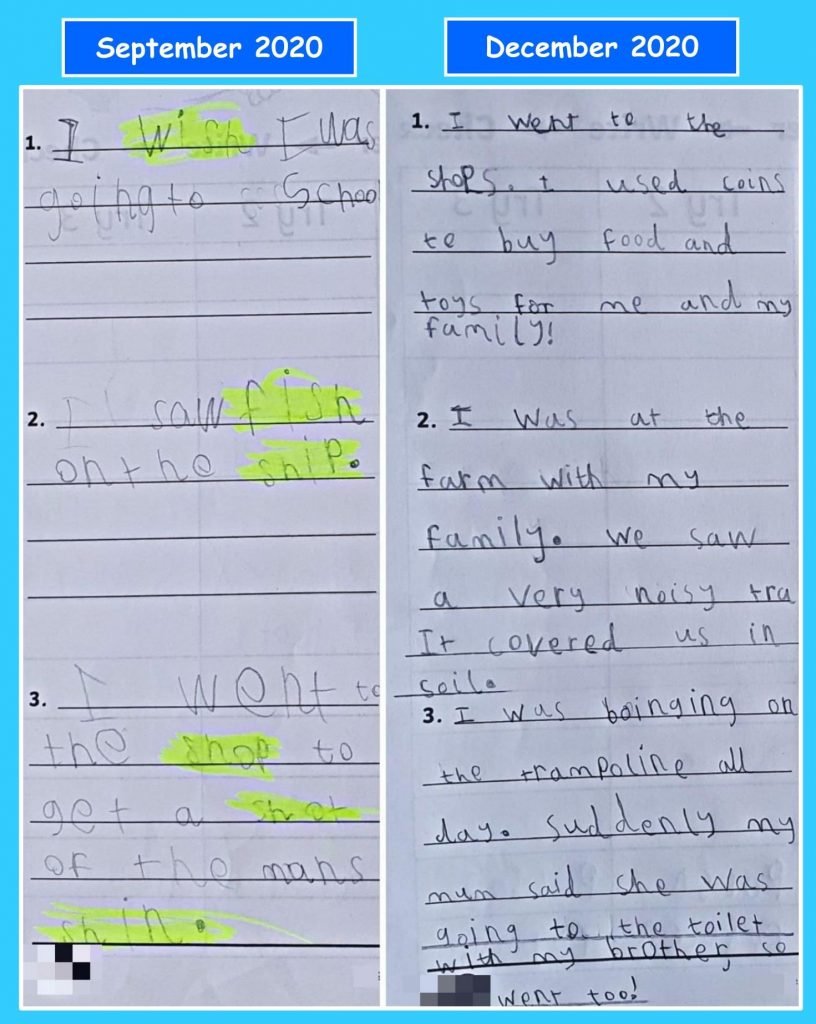 September 2020
1. I wish I was
going to Schoo
2. I saw fish
on the ship.
3. I went to
the shop to
get a shot
of the mans
shin.
December 2020
1. I went to the
shops. I used coins
to buy food and
toys for me and my
family!
2. I was at the
farm with my
family. we saw
a very noisy tra
It covered us in
soil.
3. I was boinging on
the trampoline all
day. Suddenly my
mum said she was
going to the toilet
with my brother, so
went too!